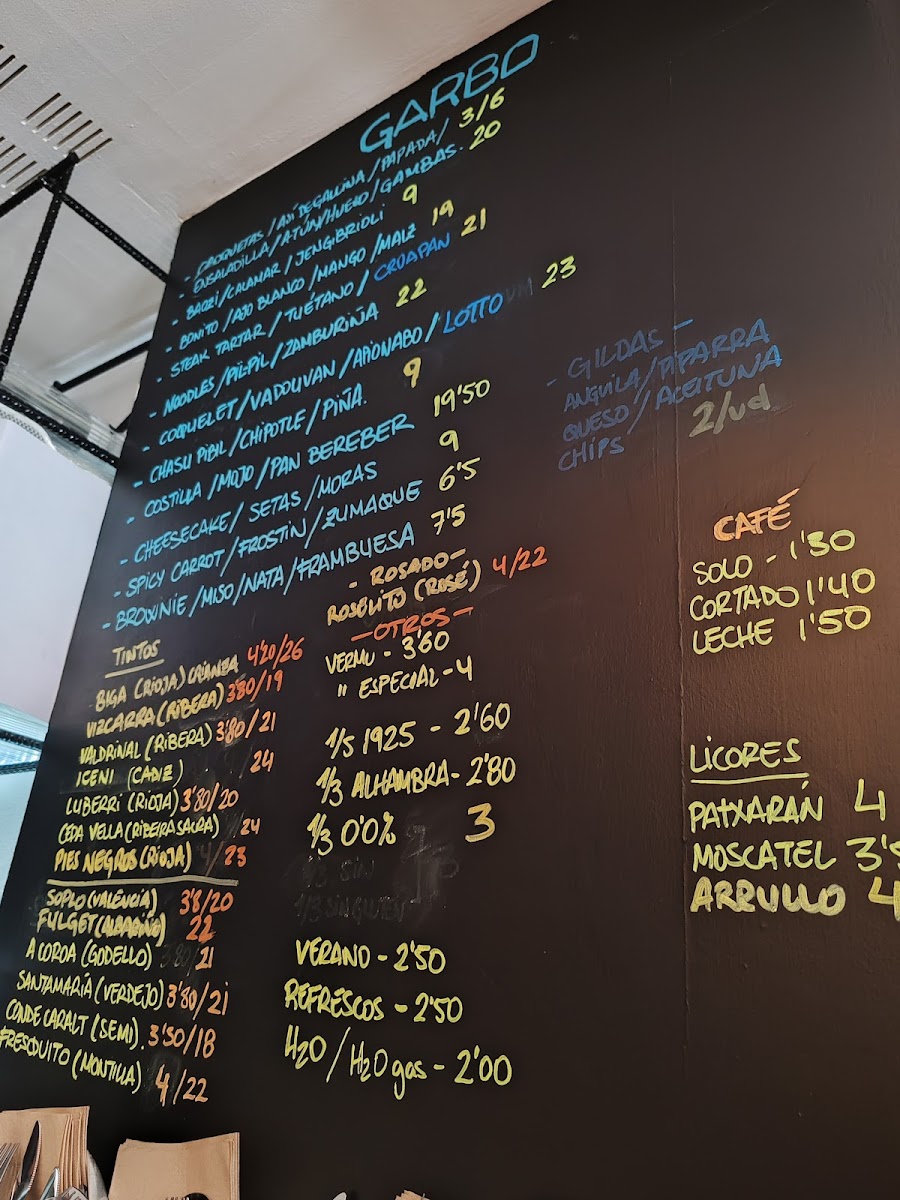 GARBO
- CROQUETAS / AJÍ DE GALLINA / PAPADA / 3/6
- ENSALADILLA / ATÚN / HUEVO / GAMBAS. 20
- BAOZI / CALAMAR / JENGIBRIOLI 9
- BONITO / AJO BLANCO / MANGO / MAIZ 19
- STEAK TARTAR / TUÉTANO / CROAPAN 21
- NOODLES / PIL-PIL / ZAMBURIÑA 22
- COQUELET / VADOUVAN / APIONABO / LOTTO 23
- CHASU PIBIL / CHIPOTLE / PIÑA. 9
- COSTILLA / MOJO / PAN BEREBER 19'50
- CHEESECAKE / SETAS / MORAS 9
- SPICY CARROT / FROSTIN / ZUMAQUE 6'5
- BROWNIE / MISO / NATA / FRAMBUESA 7'5
- GILDAS -
ANGUILA / PIPARRA
QUESO / ACEITUNA
CHIPS 2/ud
TINTOS
BIGA (RIOJA) CRIANZA 4'20/26
VIZCARRA (RIBERA) 3'80/19
VALDRINAL (RIBERA) 3'80/21
IGENI (CADIZ) 24
LUBERRI (RIOJA) 3'80/20
CEDA VELLA (RIBEIRA SACRA) / 24
PIES NEGROS (RIOJA) 4/23
SOPLO (VALENCIA) 3'8/20
FULGET (ALBARIÑO) 22
A COROA (GODELLO) 3'80/21
SANTAMARÍA (VERDEJO) 3'80/21
CONDE CARALT (SEMI). 3'50/18
FRESQUITO (MONTILLA) 4/22
- ROSADO -
ROSELITO (ROSÉ) 4/22
- OTROS -
VERMU - 3'60
" ESPECIAL - 4
1/5 1925 - 2'60
1/3 ALHAMBRA - 2'80
1/3 0'0% 3
1/3 SIN
1/3 SIN GLUTEN
VERANO - 2'50
REFRESCOS - 2'50
H2O / H2O gas - 2'00
CAFÉ
SOLO - 1'30
CORTADO 1'40
LECHE 1'50
LICORES
PATXARÁN 4
MOSCATEL 3'5
ARRULLO 4